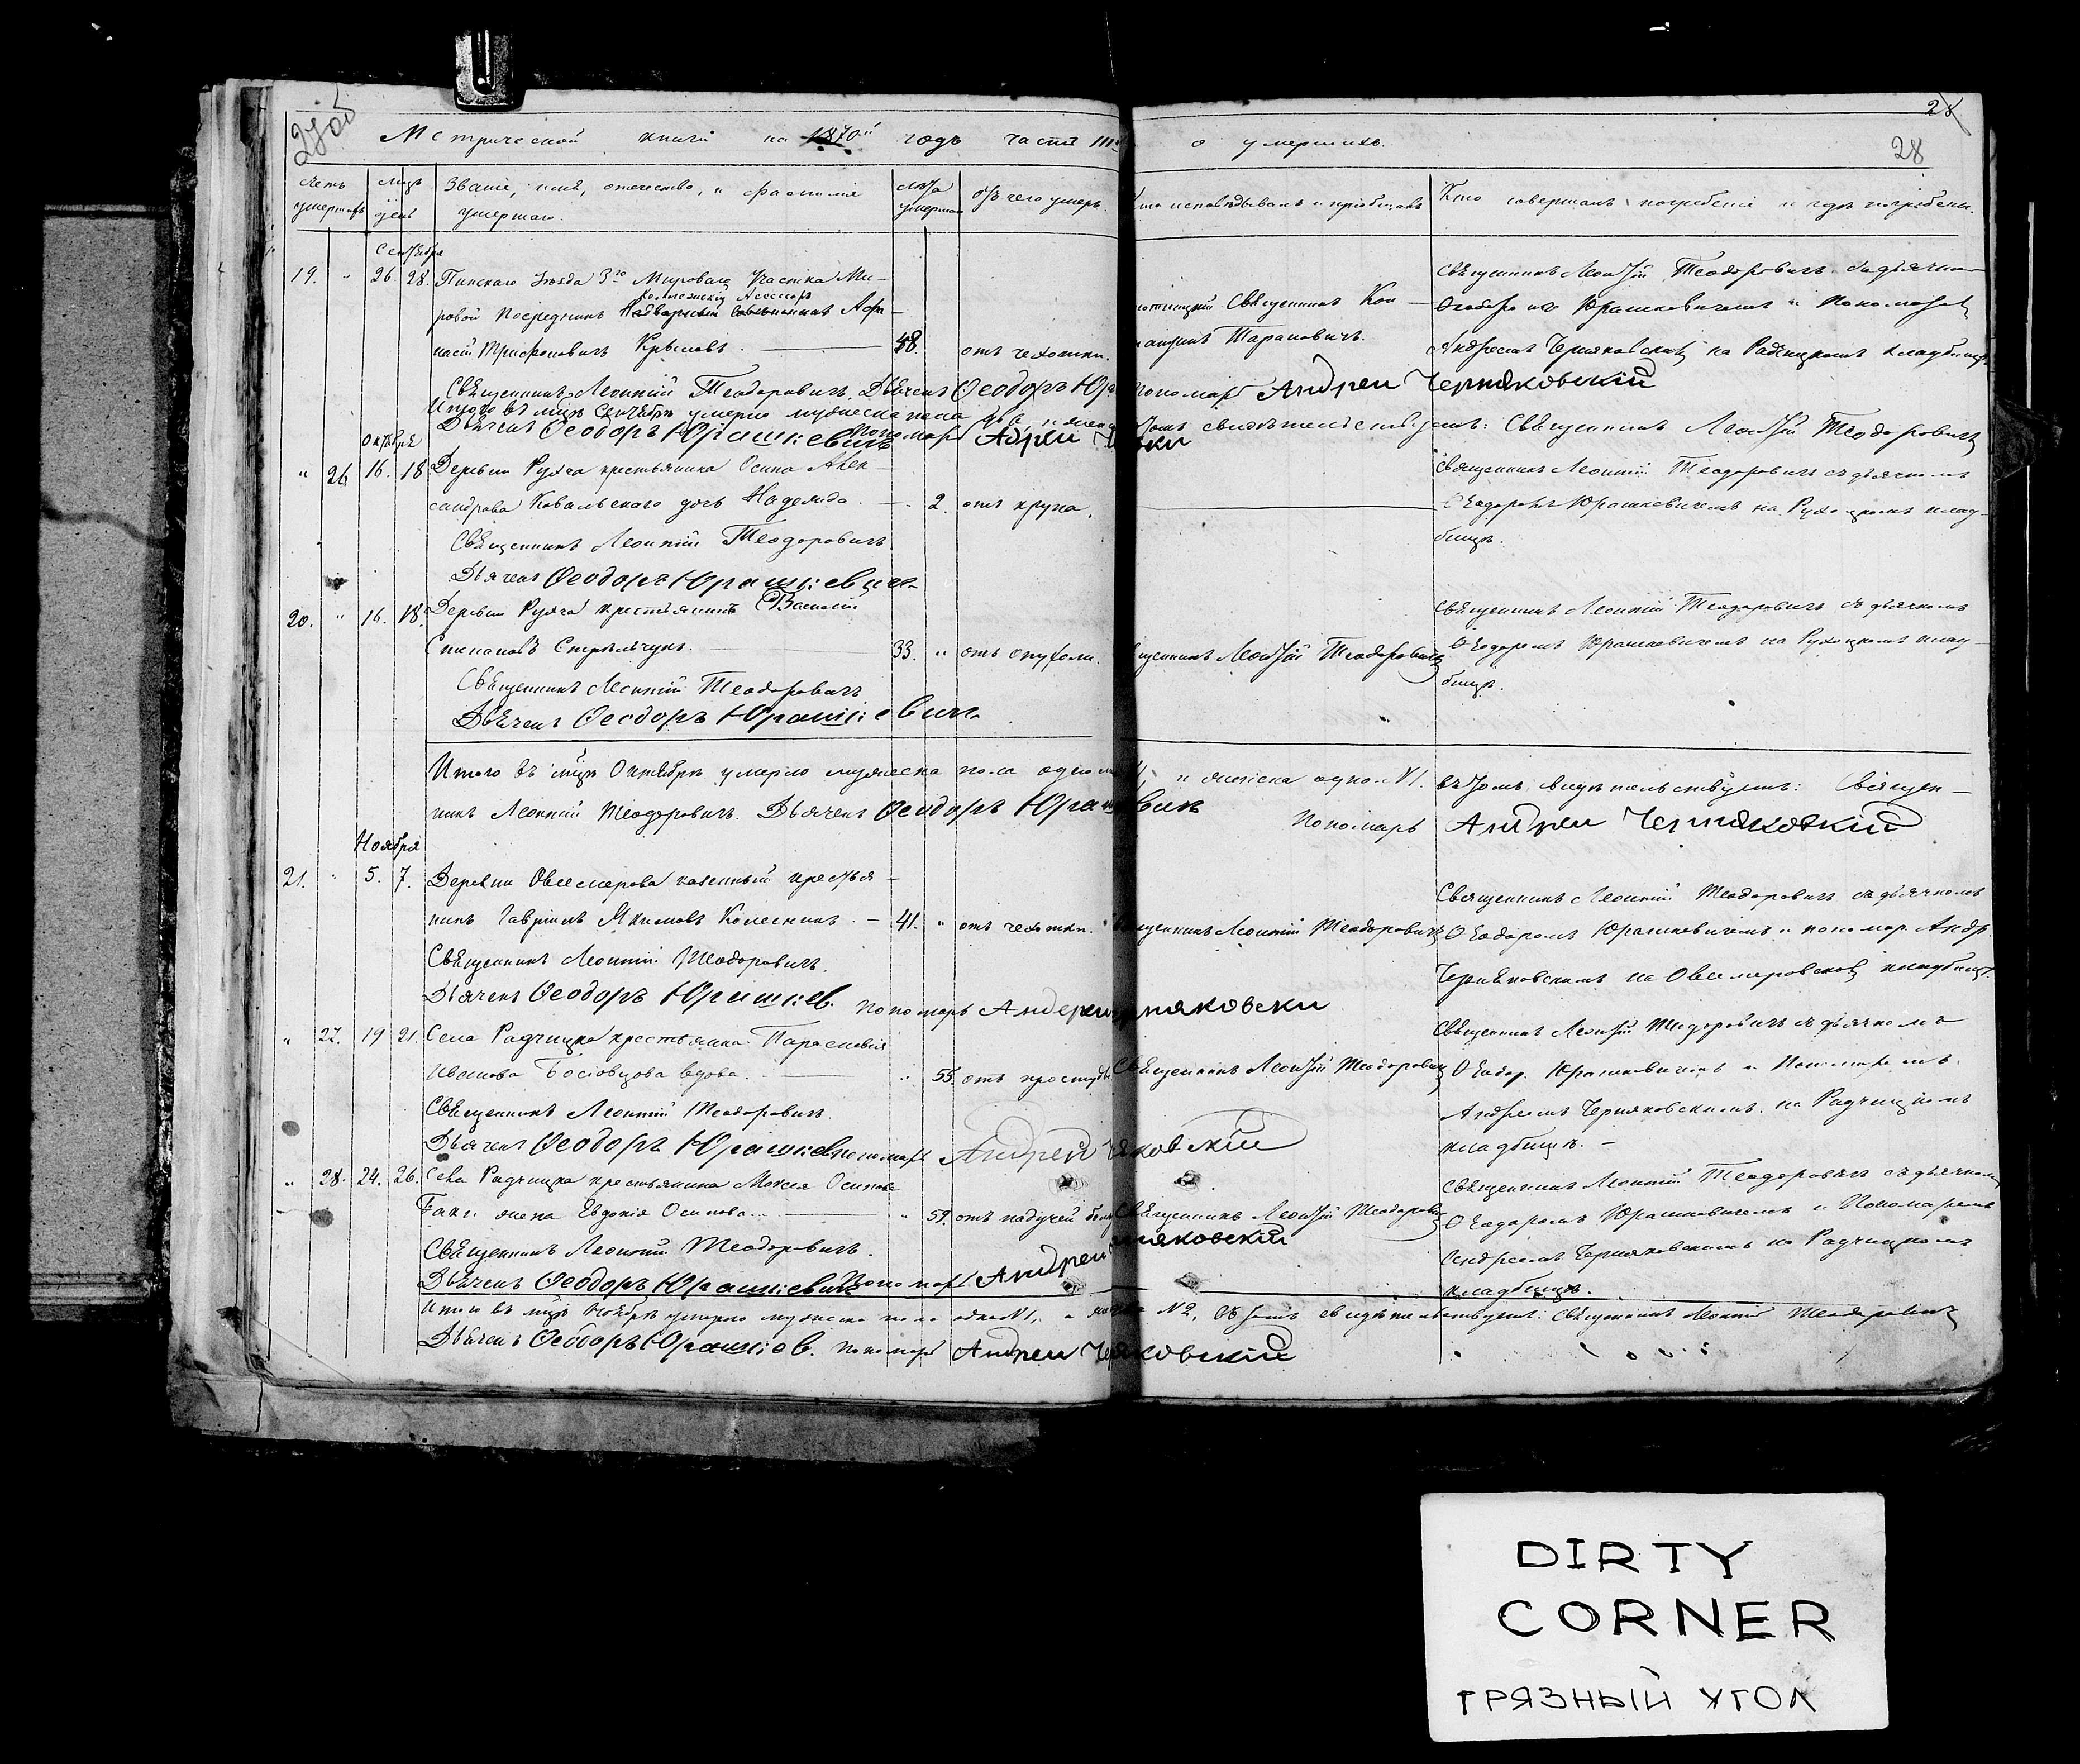 28
28
Метрической книги на 1870й годъ часть IIIя о умершихъ.
Счетъ умершихъ
мцъ день
Званіе, имя, отечество, и фамилія умершаго.
лѣта умершаго
отъ чего умеръ.
Кто исповѣдывалъ и пріобщалъ
Кто совершалъ погребеніе и гдѣ погребены.
Сентября
19. " 26. 28. Пинскаго Уѣзда 3го Мироваго Участка Ми-
ровой Посредникъ Коллежскій Ассесоръ Афа-
насій Трифоновичъ Крыловъ. 58. отъ чахотки.
Священникъ Кон-
Тарановичъ.
Священникъ Леонтій Теодоровичъ съ дьячкомъ
Ѳеодоромъ Юрашкевичемъ и Пономаремъ
Андреемъ Черняковскимъ на Радчицкомъ кладбищѣ
Священникъ Леонтій Теодоровичъ. Дьячекъ Ѳеодоръ Юра пономарь Андрей Черняковскій
Итого въ мцѣ Сентябрѣ умерло мужеска пола два, и женска томъ свидѣтельствуемъ: Священникъ Леонтій Теодоровичъ
Дьячекъ Ѳеодоръ Юрашкевичъ Пономарь Адреи
Октября
" 26. 16. 18. Деревни Рухча крестьянина Осипа Алек-
сандрова Ковальскаго дочь Надежда. — 2. отъ крупа.
Священникъ Леонтій Теодоровичъ съ дьячкомъ
Ѳеодоромъ Юрашкевичемъ на Рухоцкомъ клад-
бищѣ.
Священникъ Леонтій Теодоровичъ
Дьячекъ Ѳеодоръ Юрашкевичъ
20. " 16. 18. Деревни Рухча крестьянинъ Василій
Степановъ Стрельчукъ. 33. " отъ опухоли. Священникъ Леонтій Теодоровичъ
Священникъ Леонтій Теодоровичъ съ дьячкомъ
Ѳеодоромъ Юрашкевичемъ на Рухоцкомъ клад-
бищѣ.
Священникъ Леонтій Теодоровичъ
Дьячекъ Ѳеодоръ Юрашкевич
Итого въ мцѣ Октябрѣ умерло мужеска пола одинъ и женска одно №1. въ томъ свидѣтельствуемъ: Священ-
никъ Леонтій Теодоровичъ. Дьячекъ Ѳеодоръ Юрашкевичъ Пономарь Андреи Черняковкій
Ноября
21. " 5. 7. Деревни Овсемерова казенный крестья-
нинъ Гавріилъ Якимовъ Колесникъ. — 41. " отъ чахотки. Священникъ Леонтій Теодоровичъ
Священникъ Леонтій Теодоровичъ съ дьячкомъ
Ѳеодоромъ Юрашкевичемъ и пономар. Андр.
Черняковскимъ на Овсемеровскомъ кладбищѣ.
Священникъ Леонтій Теодоровичъ.
Дьячекъ Ѳеодоръ Юрашкев. Пономарь Андреи Черняковски
" 27. 19 21. Села Радчицка крестьянка Параскевія
Иванова вдова. " 55. отъ простуды Священникъ Леонтій Теодоровичъ
Священникъ Леонтій Теодоровичъ съ дьячкомъ
Ѳеодор. Юрашкевичемъ и Пономаремъ
Андреемъ Черняковскимъ на Радчицкомъ
кладбищѣ. —
Священникъ Леонтій Теодоровичъ.
Дьячекъ Ѳеодоръ Юрашкев пономарь Андрей Черняковскій
" 28. 24. 26. Села Радчицка крестьянина Моисея Осипова
жена Евдокія Осипова. " 59. отъ падучей бол. Священникъ Леонтій Теодоровичъ
Священникъ Леонтій Теодоровичъ съ дьячкомъ
Ѳеодоромъ Юрашкевичемъ и Пономаремъ
Андреемъ Черняковскимъ на Радчицкомъ
кладбищѣ.
Священникъ Леонтій Теодоровичъ.
Дьячекъ Ѳеодоръ Юрашкевичъ Пономарь Андреи Черняковскій
Итого въ мцѣ Ноябрѣ умерло мужеска пола одно №1, и женска №2, въ томъ свидѣтельствуемъ: Священникъ Леонтій Теодоровичъ
Дьячекъ Ѳеодоръ Юрашкев. пономарь Андреи Черняковскій
DIRTY
CORNER
ГРЯЗНЫЙ УГОЛ